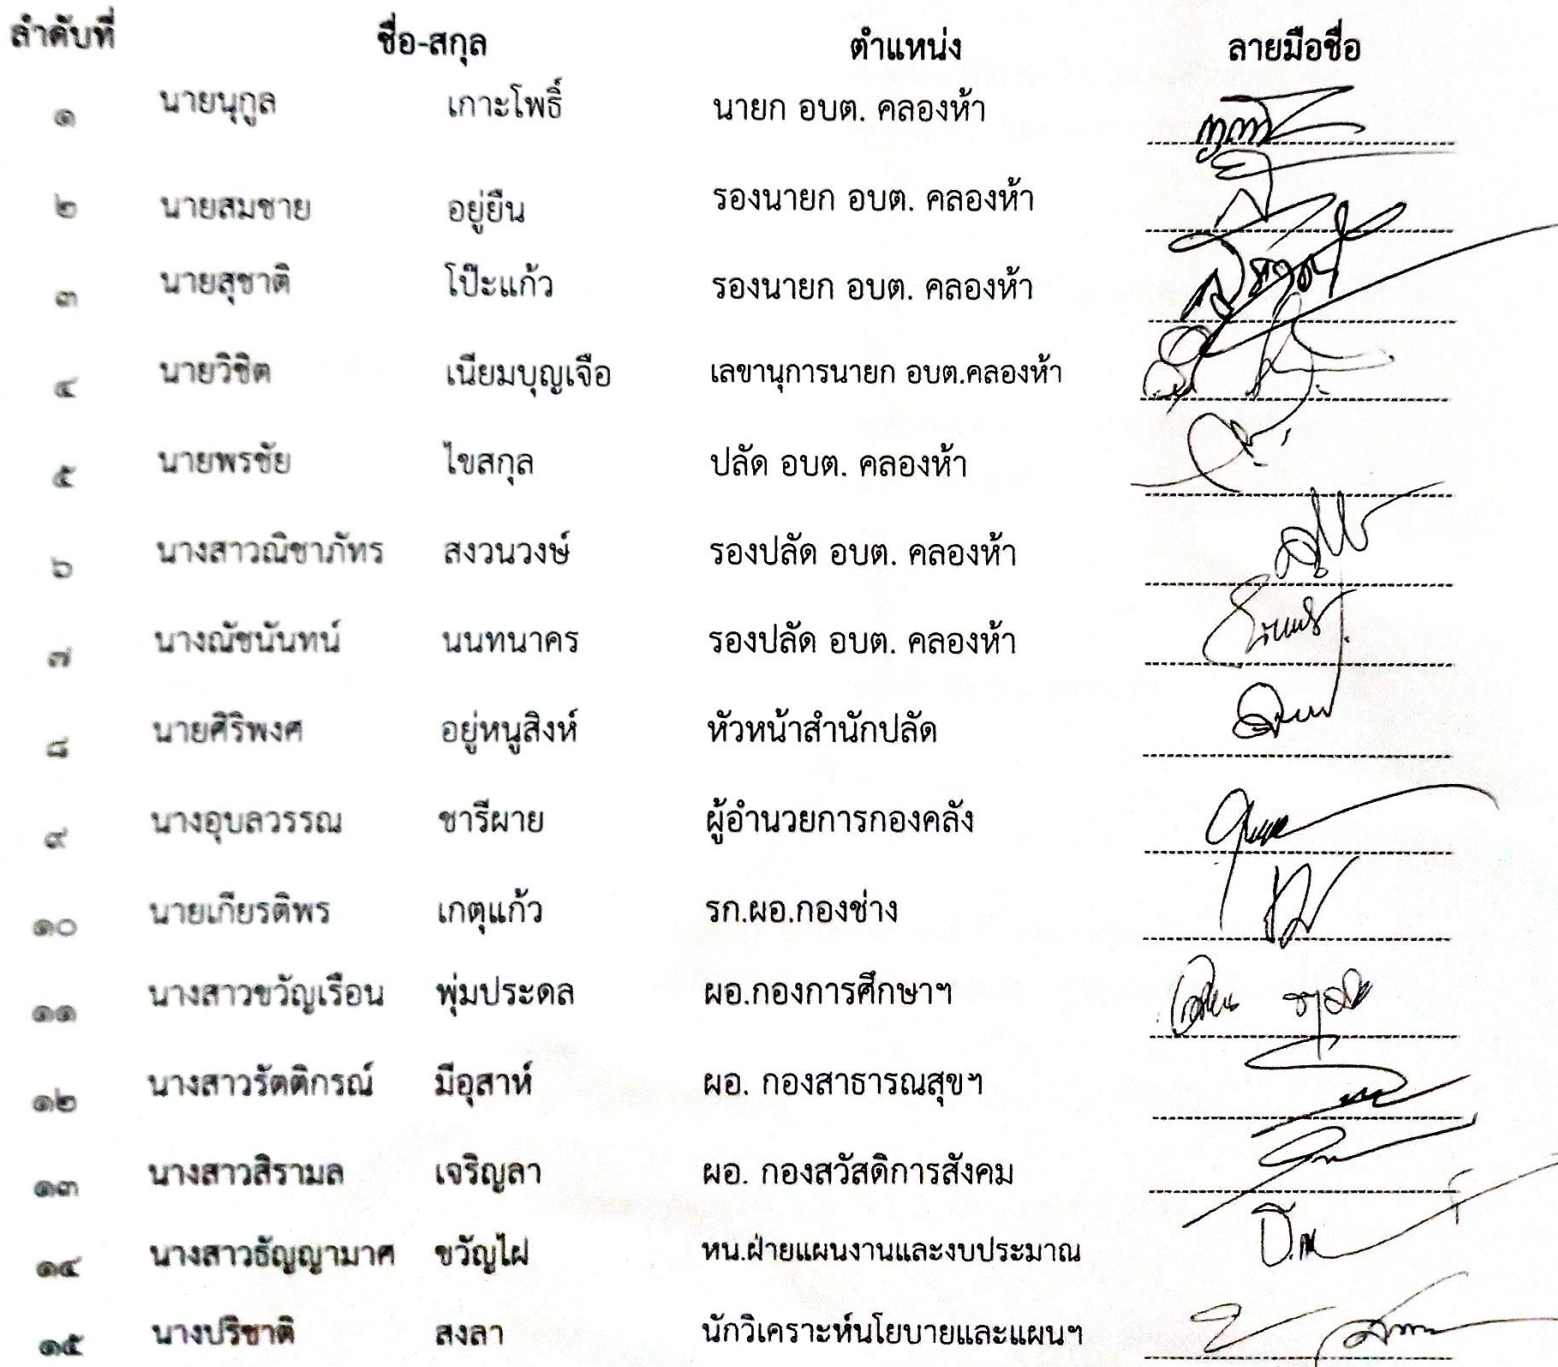 ลำดับที่ ชื่อ-สกุล ตำแหน่ง ลายมือชื่อ
๑ นายนุกูล เกาะโพธิ์ นายก อบต. คลองห้า
๒ นายสมชาย อยู่ยืน รองนายก อบต. คลองห้า
๓ นายสุชาติ โป๊ะแก้ว รองนายก อบต. คลองห้า
๔ นายวิชิต เนียมบุญเจือ เลขานุการนายก อบต.คลองห้า
๕ นายพรชัย ไขสกุล ปลัด อบต. คลองห้า
๖ นางสาวณิชาภัทร สงวนวงษ์ รองปลัด อบต. คลองห้า
๗ นางณัชนันทน์ นนทนาคร รองปลัด อบต. คลองห้า
๘ นายศิริพงศ อยู่หนูสิงห์ หัวหน้าสำนักปลัด
๙ นางอุบลวรรณ ชารีผาย ผู้อำนวยการกองคลัง
๑๐ นายเกียรติพร เกตุแก้ว รก.ผอ.กองช่าง
๑๑ นางสาวขวัญเรือน พุ่มประดล ผอ.กองการศึกษาฯ
๑๒ นางสาวรัตติกรณ์ มีอุสาห์ ผอ. กองสาธารณสุขฯ
๑๓ นางสาวสิรามล เจริญลา ผอ. กองสวัสดิการสังคม
๑๔ นางสาวธัญญามาศ ขวัญไฝ หน.ฝ่ายแผนงานและงบประมาณ
๑๕ นางปริชาติ สงลา นักวิเคราะห์นโยบายและแผนฯ